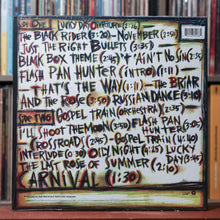 SIDE ONE LUCKY DAY OVERTURE (2:26)
THE BLACK RIDER (3:20) NOVEMBER (2:50)
JUST THE RIGHT BULLETS (3:35)
BLACK BOX THEME (2:42) 'T' AIN'T NO SIN
FLASH PAN HUNTER (INTRO) (1:11)
THAT'S THE WAY (1:11) THE BRIAR
AND THE ROSE (3:50) RUSSIAN DANCE (3:10)
SIDE TWO GOSPEL TRAIN (ORCHESTRA) (2:35)
I'LL SHOOT THE MOON (3:50) FLASH PAN
HUNTER (3:05)
CROSSROADS (2:45) GOSPEL TRAIN (4:40)
INTERLUDE (0:20) OILY NIGHT (4:25) LUCKY DAY (3:45)
THE LAST ROSE OF SUMMER (2:10)
CARNIVAL (1:30)